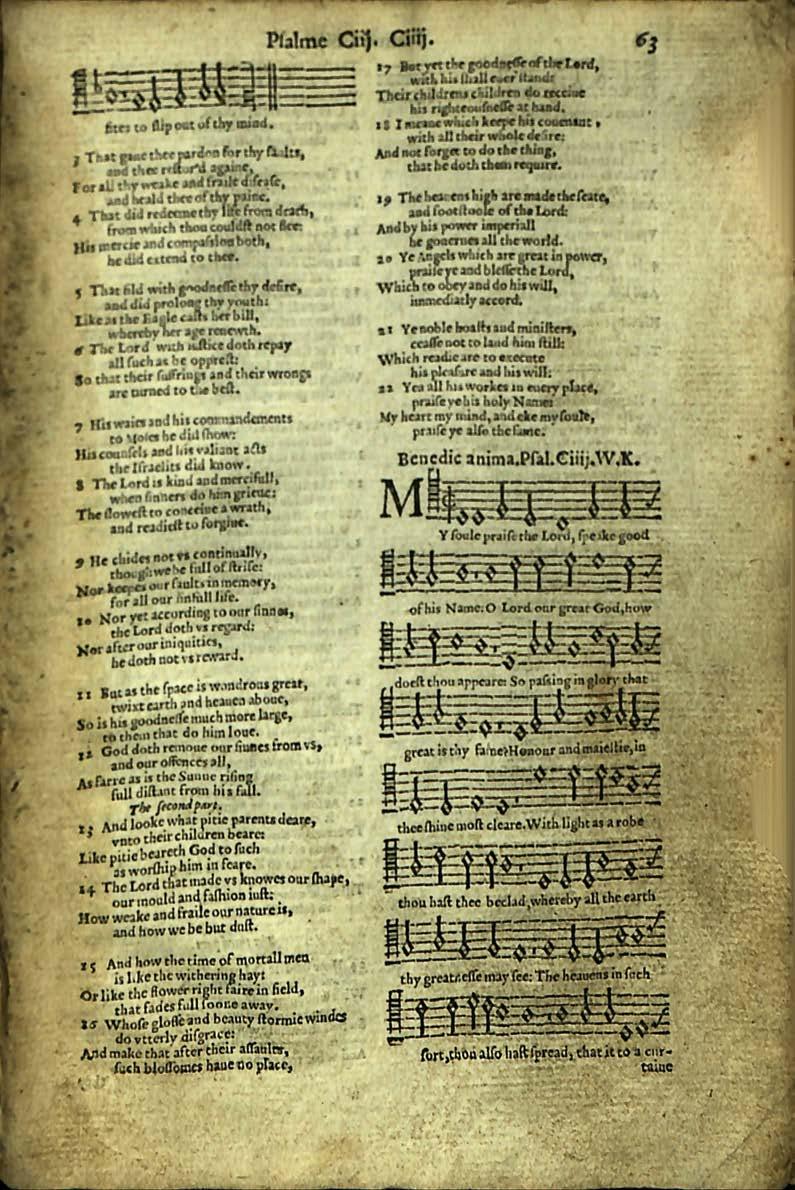 Psalme Ciij. Ciiij.
63
fites to slip out of thy mind.
3 That gaue thee pardon for thy faults,
and thee restor'd againe,
For all thy weake and fraile disease,
and heald thee of thy paine.
4 That did redeeme thy life from death,
from which thou couldst not flee:
His mercie and compassion both,
he did extend to thee.
5 That fild with goodnesse thy desire,
and did prolong thy youth:
Like as the Eagle casts her bill,
whereby her age renewth.
6 The Lord with iustice doth repay
all such as be opprest:
So that their suffrings and their wrongs
are turned to the best.
7 His waies and his commandements
to Moses he did show:
His counsels and his valiant acts
the Israelits did know.
8 The Lord is kind and mercifull,
when sinners do him grieue:
The slowest to conceiue a wrath,
and readiest to forgiue.
9 He chides not vs continually,
though we be full of strife:
Nor keepes our faults in memory,
for all our sinfull life.
10 Nor yet according to our sinnes,
the Lord doth vs regard:
Nor after our iniquities,
he doth not vs reward.
11 But as the space is wondrous great,
twixt earth and heauen aboue,
So is his goodnesse much more large,
to them that do him loue.
12 God doth remoue our sinnes from vs,
and our offences all,
As farre as is the Sunne rising
full distant from his fall.
The second part.
13 And looke what pitie parents deare,
vnto their children beare:
Like pitie beareth God to such
as worship him in feare.
14 The Lord that made vs knowes our shape,
our mould and fashion iust:
How weake and fraile our nature is,
and how we be but dust.
15 And how the time of mortall men
is like the withering hay:
Or like the flower right faire in field,
that fades full soone away.
16 Whose glosse and beauty stormie windes
do vtterly disgrace:
And make that after their assaults,
such blossomes haue no place,
17 But yet the goodnesse of the Lord,
with his shall euer stand:
Their childrens children do receiue
his righteousnesse at hand.
18 I meane which keepe his couenant,
with all their whole desire:
And not forget to do the thing,
that he doth them require.
19 The heauens high are made the seate,
and footstoole of the Lord:
And by his power imperiall
he gouernes all the world.
20 Ye Angels which are great in power,
praise ye and blesse the Lord,
Which to obey and do his will,
immediatly accord.
21 Ye noble hoasts and ministers,
ceasse not to laud him still:
Which readie are to execute
his pleasure and his will:
22 Yea all his workes in euery place,
praise ye his holy Name:
My heart my mind, and eke my soule,
praise ye also the same.
Benedic anima.Psal.Ciiij.W.K.
MY soule praise the Lord, speake good
of his Name: O Lord our great God, how
doest thou appeare: So passing in glory that
great is thy fame: Honour and maiestie, in
thee shine most cleare. With light as a robe
thou hast thee beclad, whereby all the earth
thy greatnesse may see: The heauens in such
sort, thou also hast spread, that it to a cur-
taine